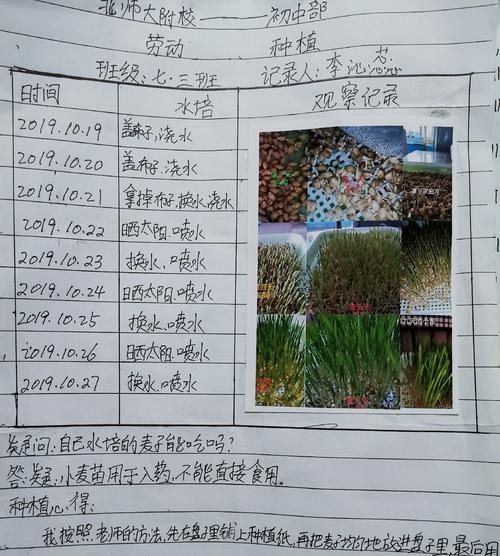 北师大附校——初中部
劳动 种植
班级:七·三班 记录人:李沁蕊
时间 水培 观察记录
2019.10.19 盖布子,浇水
2019.10.20 盖布子,浇水
2019.10.21 拿掉布子.换水.浇水
2019.10.22 晒太阳.喷水
2019.10.23 换水.喷水
2019.10.24 晒太阳.喷水
2019.10.25 换水.喷水
2019.10.26 晒太阳.喷水
2019.10.27 换水.喷水
疑问:自己水培的麦子能吃吗?
答疑:小麦苗用于入药,不能直接食用。
种植心得:
我按照老师的方法,先在盘子里铺上种植纸,再把麦子均匀地放进盘子里,最后用